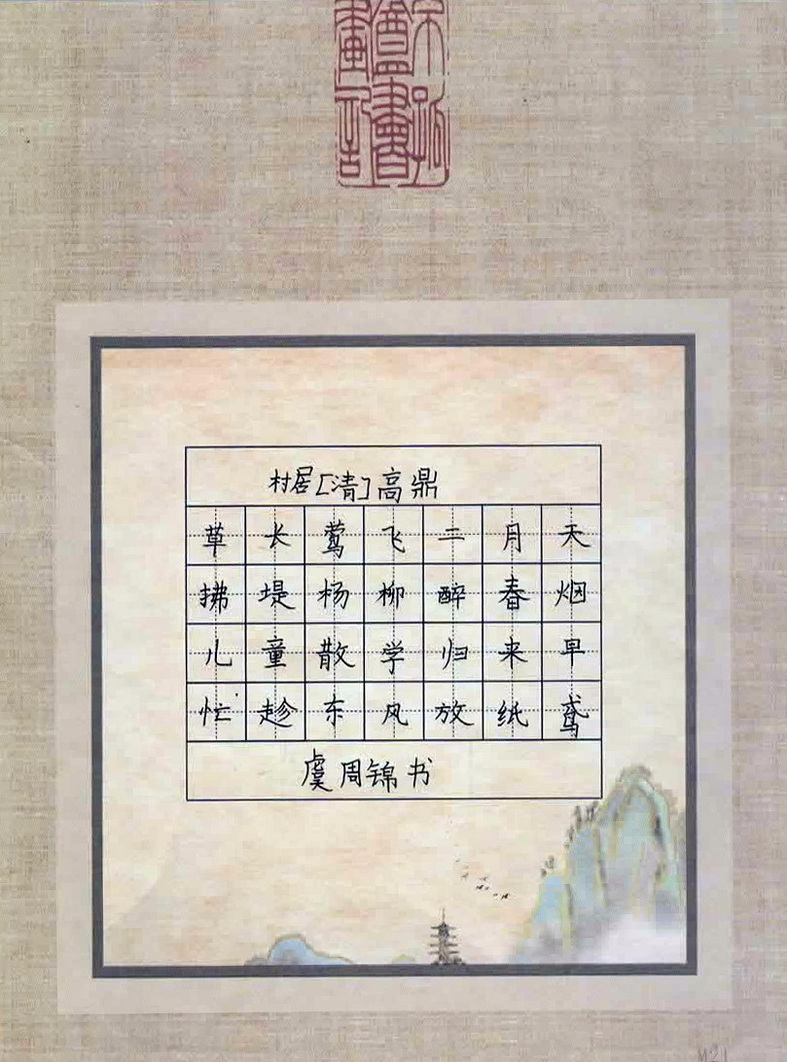 村居[清]高鼎
草长莺飞二月天
拂堤杨柳醉春烟
儿童散学归来早
忙趁东风放纸鸢
虞周锦书